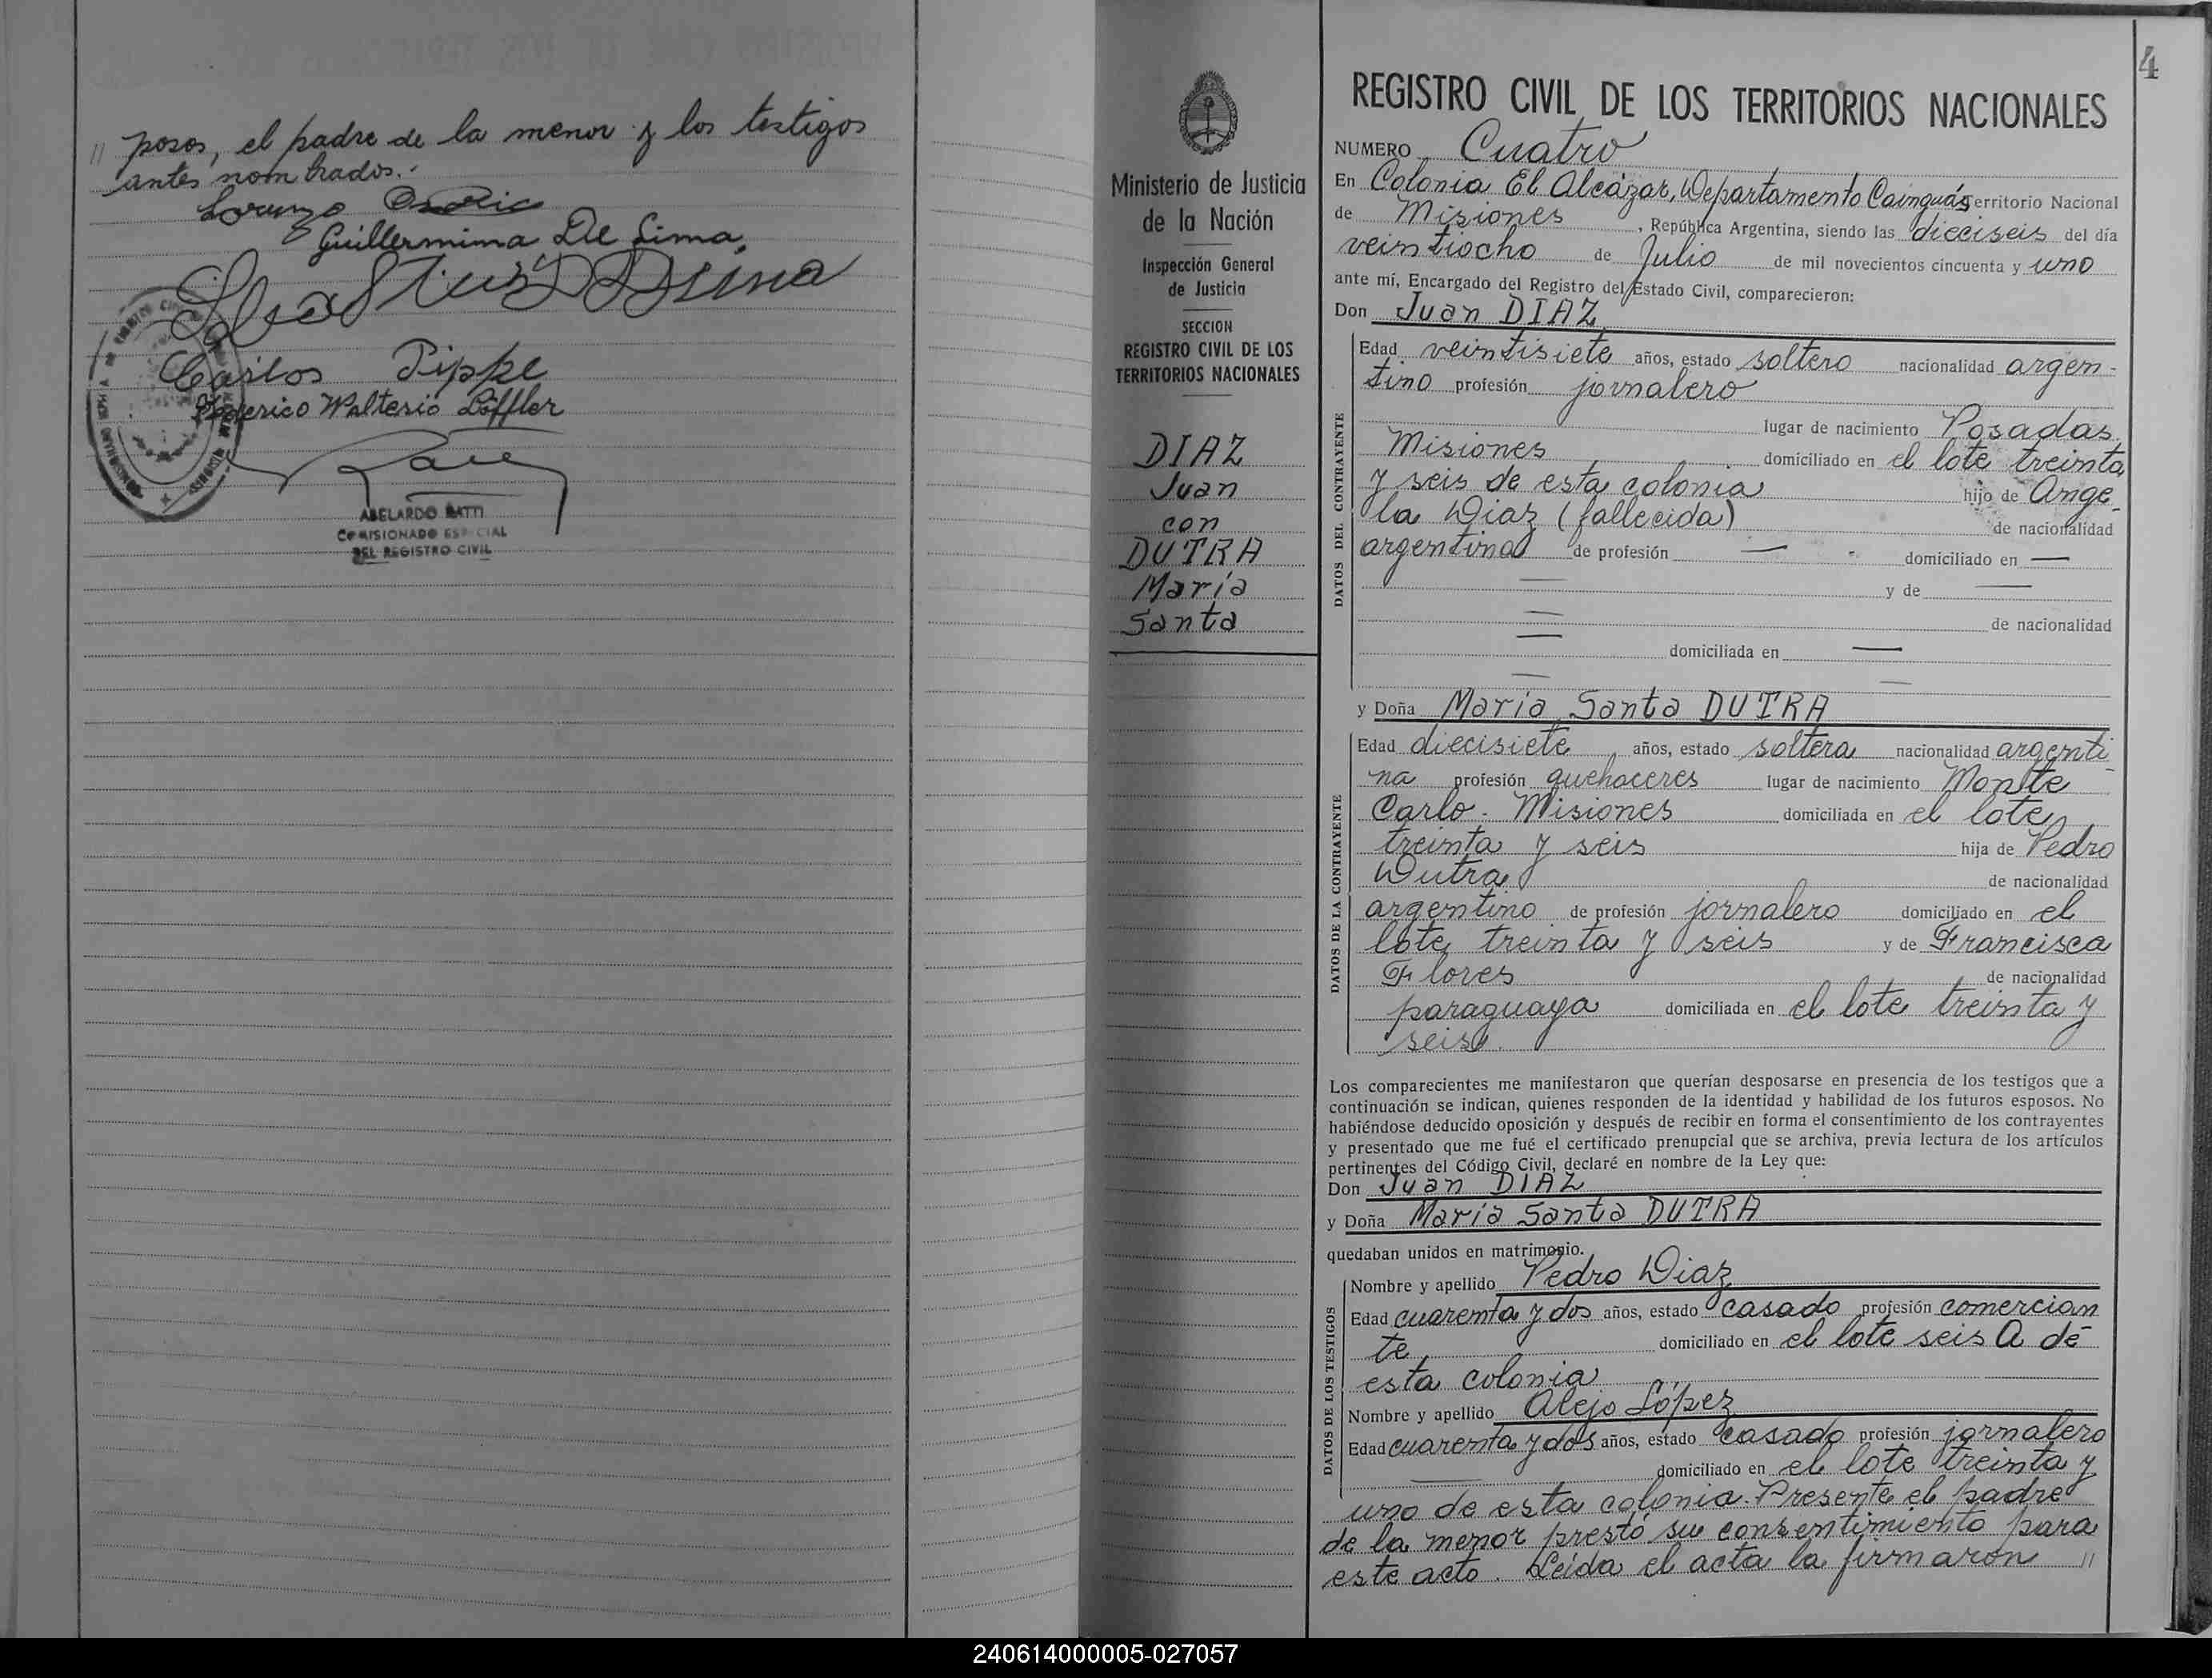 " posos, el padre de la menor y los testigos
antes nombrados.-
Lorenzo
Guillermina De Lima
Carlos Pippke
Federico Walterio Löffler
ABELARDO RATTI
COMISIONADO ESPECIAL
DEL REGISTRO CIVIL
4
Ministerio de Justicia
de la Nación
Inspección General
de Justicia
SECCION
REGISTRO CIVIL DE LOS
TERRITORIOS NACIONALES
DIAZ
Juan
con
DUTRA
María
Santa
REGISTRO CIVIL DE LOS TERRITORIOS NACIONALES
NUMERO Cuatro
En Colonia El Alcázar, Departamento Cainguás Territorio Nacional
de Misiones, República Argentina, siendo las dieciseis del día
veintiocho de Julio de mil novecientos cincuenta y uno
ante mí, Encargado del Registro del Estado Civil, comparecieron:
Don Juan DIAZ
DATOS DEL CONTRAYENTE
Edad veintisiete años, estado soltero nacionalidad argen-
tino profesión jornalero
lugar de nacimiento Posadas
Misiones domiciliado en el lote treinta
y seis de esta colonia hijo de Ange-
la Diaz (fallecida) de nacionalidad
argentina de profesión — domiciliado en —
— y de —
— de nacionalidad
— domiciliada en —
y Doña María Santa DUTRA
DATOS DE LA CONTRAYENTE
Edad diecisiete años, estado soltera nacionalidad argenti-
na profesión quehaceres lugar de nacimiento Monte
Carlo - Misiones domiciliada en el lote
treinta y seis hija de Pedro
Dutra de nacionalidad
argentino de profesión jornalero domiciliado en el
lote treinta y seis y de Francisca
Flores de nacionalidad
paraguaya domiciliada en el lote treinta y
seis.
Los comparecientes me manifestaron que querían desposarse en presencia de los testigos que a
continuación se indican, quienes responden de la identidad y habilidad de los futuros esposos. No
habiéndose deducido oposición y después de recibir en forma el consentimiento de los contrayentes
y presentado que me fué el certificado prenupcial que se archiva, previa lectura de los artículos
pertinentes del Código Civil, declaré en nombre de la Ley que:
Don Juan DIAZ
y Doña María Santa DUTRA
quedaban unidos en matrimonio.
DATOS DE LOS TESTIGOS
Nombre y apellido Pedro Diaz
Edad cuarenta y dos años, estado casado profesión comercian
te domiciliado en el lote seis A de
esta colonia
Nombre y apellido Alejo López
Edad cuarenta y dos años, estado casado profesión jornalero
domiciliado en el lote treinta y
uno de esta colonia. Presente el padre
de la menor prestó su consentimiento para
este acto. Leída el acta la firmaron "
240614000005-027057